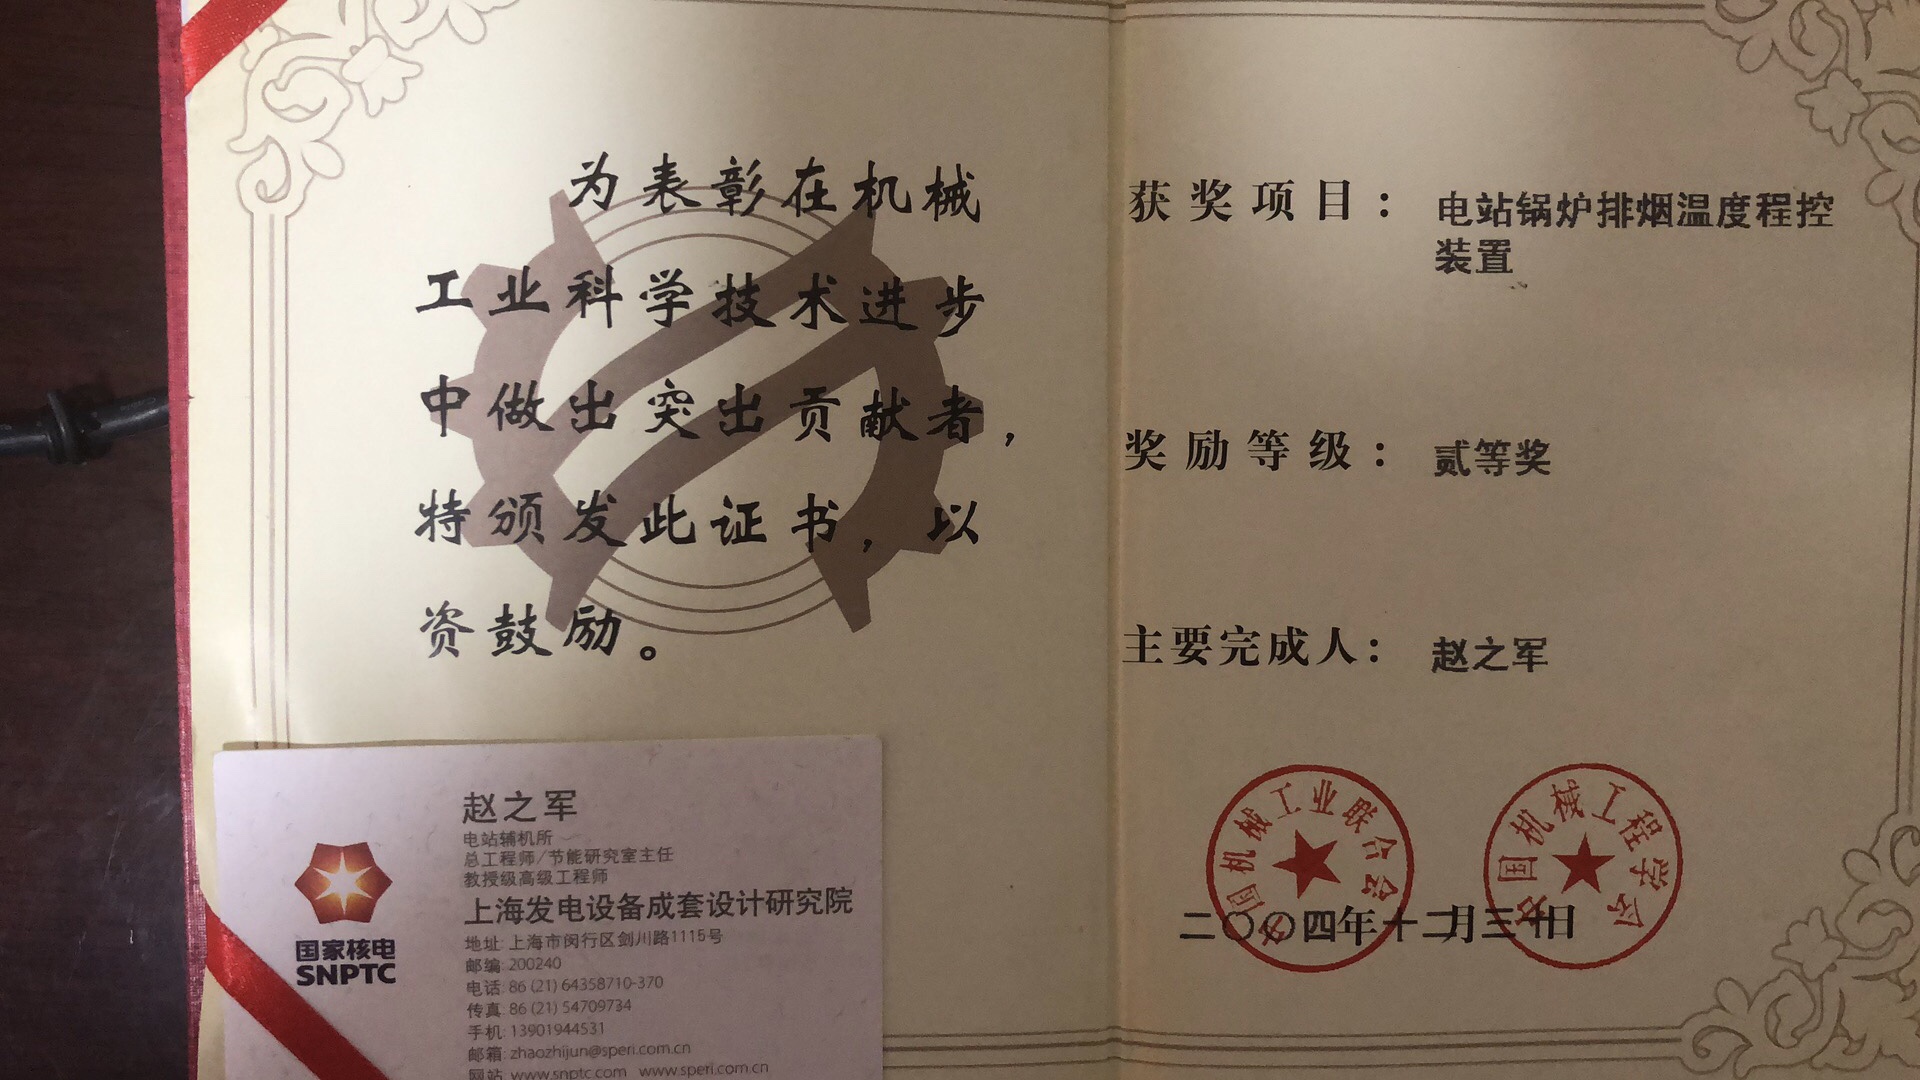 为表彰在机械
工业科学技术进步
中做出突出贡献者，
特颁发此证书，以
资鼓励。
获奖项目：电站锅炉排烟温度程控
装置
奖励等级：贰等奖
主要完成人：赵之军
中国机械工业联合会
中国机械工程学会
二〇〇四年十二月三十日
赵之军
电站辅机所
总工程师/节能研究室主任
教授级高级工程师
上海发电设备成套设计研究院
地址: 上海市闵行区剑川路1115号
邮编: 200240
电话: 86 (21) 64358710-370
传真: 86 (21) 54709734
手机: 13901944531
邮箱: zhaozhijun@speri.com.cn
网站: www.snptc.com www.speri.com.cn
国家核电
SNPTC